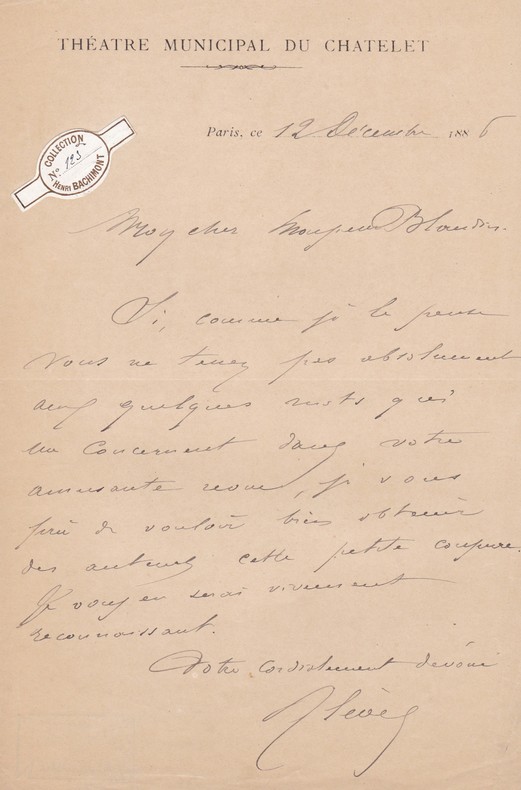 THÉATRE MUNICIPAL DU CHATELET
Paris, ce 12 Décembre 1886
COLLECTION
No. 123
HENRY BACHIMONT
Mon cher Monsieur Blandin.
Si, comme je le pense
vous ne tenez pas absolument
aux quelques mots qui
me concernent dans votre
amusante revue, je vous
prie de vouloir bien obtenir
des auteurs cette petite coupure.
Je vous en serai vivement
reconnaissant.
Votre cordialement dévoué